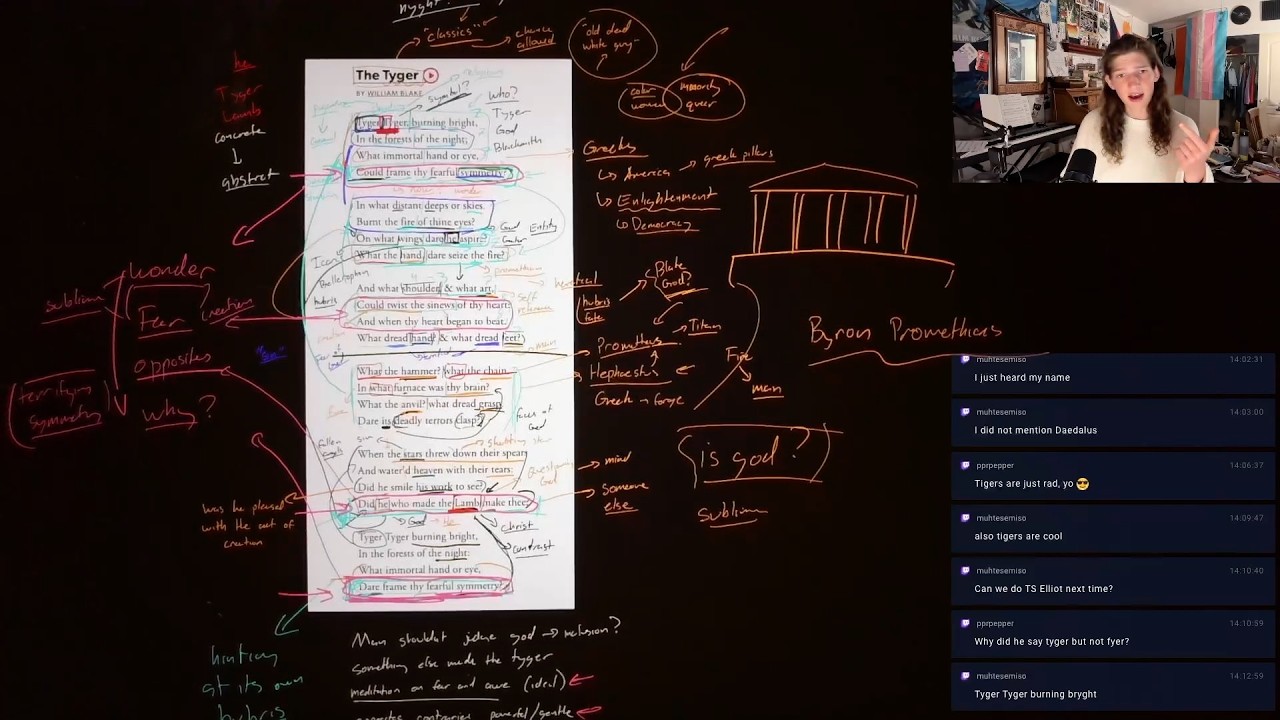 "classics"
chance
allowed
"old dead
white guy"
color
women
minority
queer
he
Tyger
Lamb
concrete
abstract
The Tyger
BY WILLIAM BLAKE
symbol?
who?
Tyger
God
Blacksmith
Tyger Tyger, burning bright,
In the forests of the night;
What immortal hand or eye,
Could frame thy fearful symmetry?
In what distant deeps or skies.
Burnt the fire of thine eyes?
On what wings dare he aspire?
What the hand, dare seize the fire?
And what shoulder, & what art,
Could twist the sinews of thy heart?
And when thy heart began to beat.
What dread hand? & what dread feet?
What the hammer? what the chain,
In what furnace was thy brain?
What the anvil? what dread grasp.
Dare its deadly terrors clasp?
When the stars threw down their spears
And water'd heaven with their tears:
Did he smile his work to see?
Did he who made the Lamb make thee?
Tyger Tyger burning bright,
In the forests of the night:
What immortal hand or eye,
Dare frame thy fearful symmetry?
God
Entity
Icarus
hubris
heretical
self
reference
faces of
God
fallen
angels
sin
shooting star
questioning
God
He
Christ
contrast
Greeks
America
greek pillars
Enlightenment
Democracy
Blake
God?
hubris
fate
Prometheus
Titan
Hephaestus
Greek
forge
Fire
man
mind
someone
else
is god?
sublime
Byron Prometheus
wonder
sublime
Fear
creation
opposites
terrifying
symmetry
why?
was he pleased
with the act of
creation
hinting
at its own
hubris
Man shouldn't judge god → inclusion?
something else made the tyger
meditation on fear and awe (ideal)
contraries powerful/gentle
muhtesemiso 14:02:31
I just heard my name
muhtesemiso 14:03:00
I did not mention Daedalus
pprpepper 14:06:37
Tigers are just rad, yo 😎
muhtesemiso 14:09:47
also tigers are cool
muhtesemiso 14:10:40
Can we do TS Elliot next time?
pprpepper 14:10:59
Why did he say tyger but not fyer?
muhtesemiso 14:12:59
Tyger Tyger burning bryght